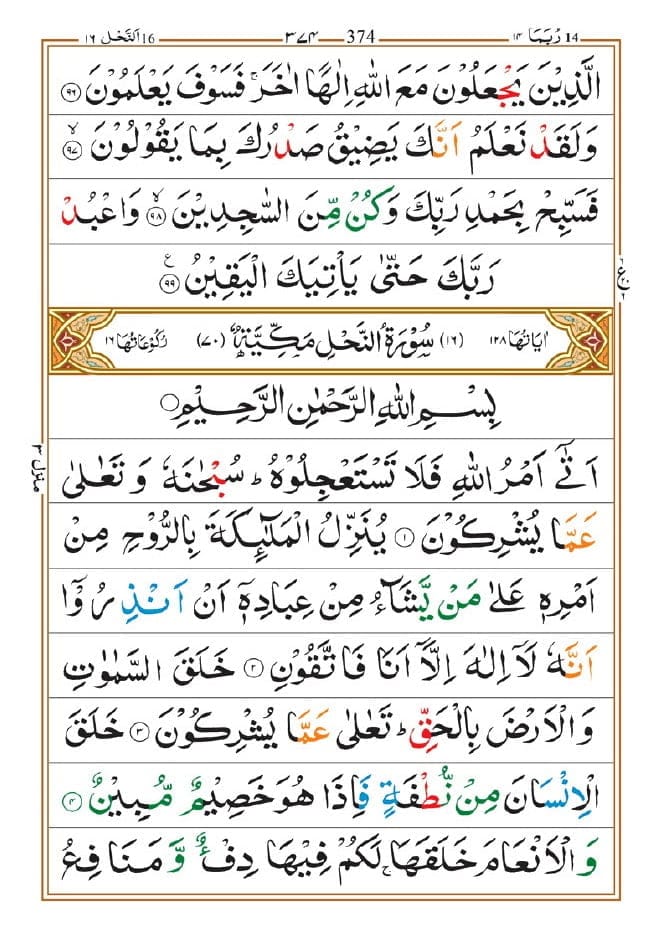 16 اَلنَّحْل ١٦ ٣٧٤ 374 14 رُبَمَا ١٤
الَّذِيْنَ يَجْعَلُوْنَ مَعَ اللّٰهِ اِلٰهًا اٰخَرَ ۚ فَسَوْفَ يَعْلَمُوْنَ ۹۶
وَلَقَدْ نَعْلَمُ اَنَّكَ يَضِيْقُ صَدْرُكَ بِمَا يَقُوْلُوْنَ ۙ ۹۷
فَسَبِّحْ بِحَمْدِ رَبِّكَ وَكُنْ مِّنَ السّٰجِدِيْنَ ۙ ۹۸ وَاعْبُدْ
رَبَّكَ حَتّٰى يَاْتِيَكَ الْيَقِيْنُ ۹۹ ع
اٰيَاتُهَا ١٢٨ (١٦) سُوْرَةُ النَّحْلِ مَكِّيَّةٌ (٧٠) رُكُوْعَاتُهَا ١٦
بِسْمِ اللّٰهِ الرَّحْمٰنِ الرَّحِيْمِ
اَتٰۤى اَمْرُ اللّٰهِ فَلَا تَسْتَعْجِلُوْهُ ؕ سُبْحٰنَهٗ وَ تَعٰلٰى
منزل ٣
عَمَّا يُشْرِكُوْنَ ۱ يُنَزِّلُ الْمَلٰٓئِكَةَ بِالرُّوْحِ مِنْ
اَمْرِهٖ عَلٰى مَنْ يَّشَآءُ مِنْ عِبَادِهٖۤ اَنْ اَنْذِرُوْۤا
اَنَّهٗ لَاۤ اِلٰهَ اِلَّاۤ اَنَا فَاتَّقُوْنِ ۲ خَلَقَ السَّمٰوٰتِ
وَالْاَرْضَ بِالْحَقِّ ؕ تَعٰلٰى عَمَّا يُشْرِكُوْنَ ۳ خَلَقَ
الْاِنْسَانَ مِنْ نُّطْفَةٍ فَاِذَا هُوَ خَصِيْمٌ مُّبِيْنٌ ۴
وَالْاَنْعَامَ خَلَقَهَا ۚ لَكُمْ فِيْهَا دِفْءٌ وَّ مَنَافِعُ